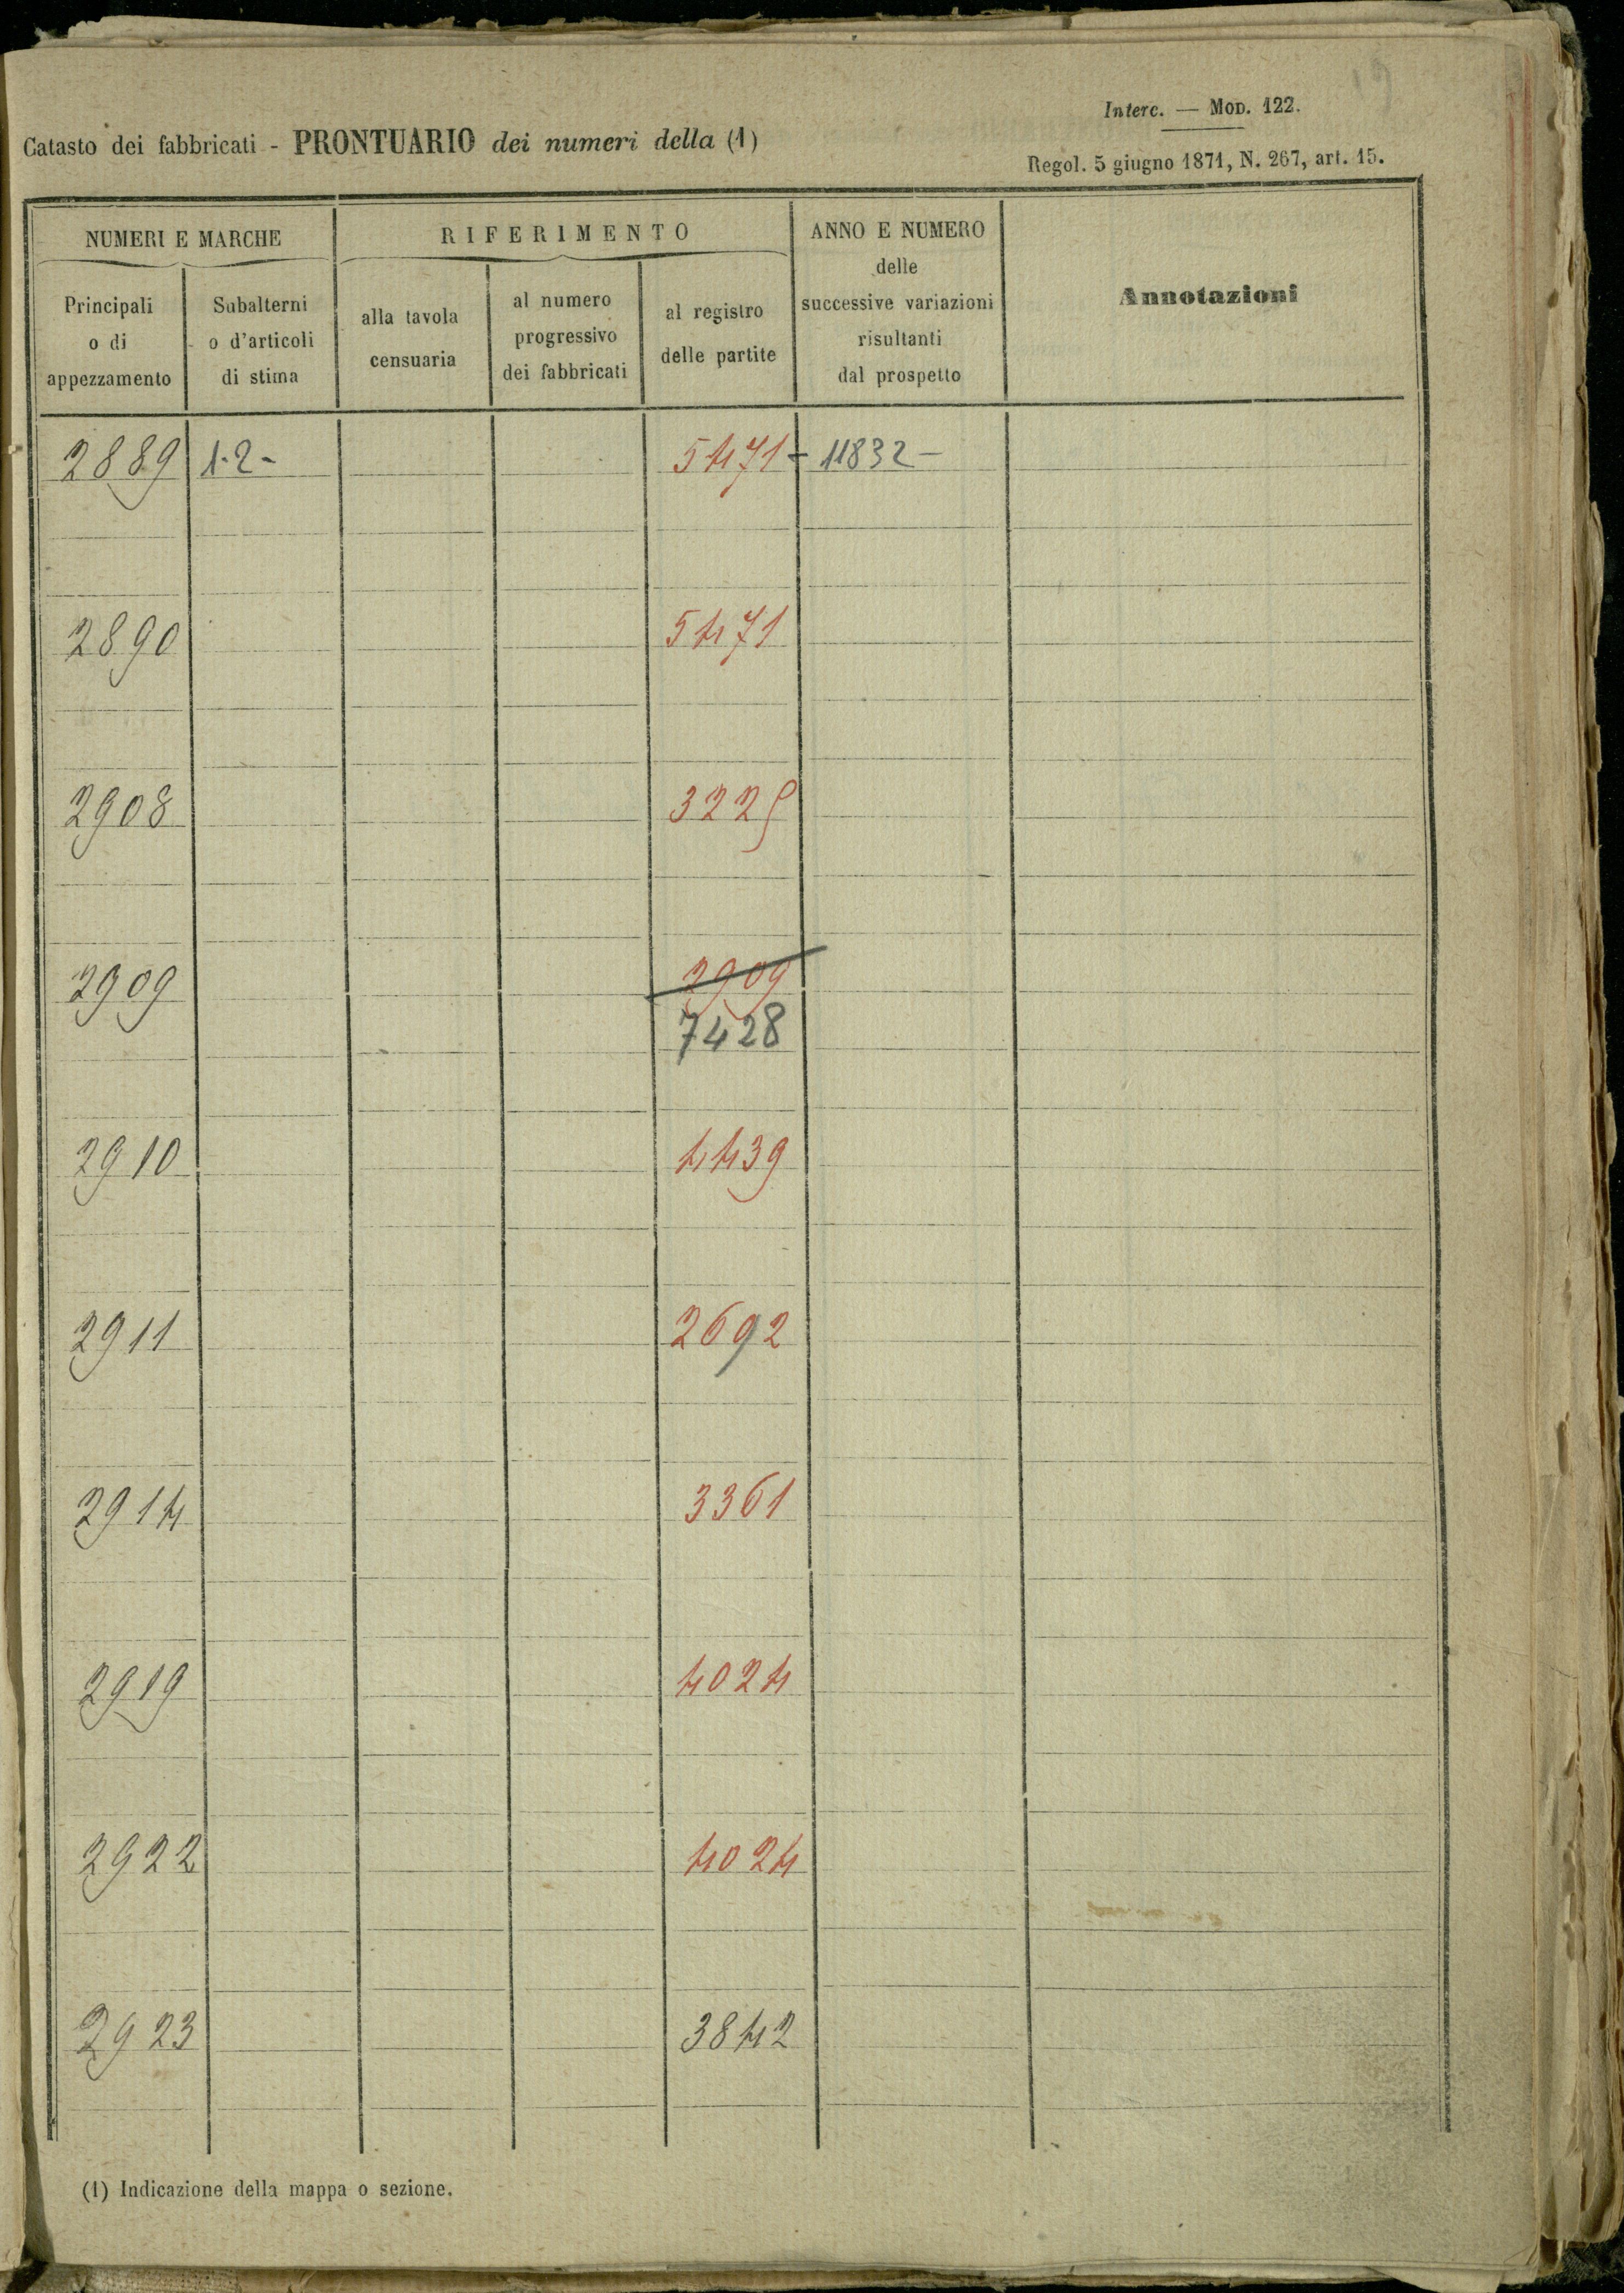 19
Interc. — MOD. 122.
Catasto dei fabbricati - PRONTUARIO dei numeri della (1)
Regol. 5 giugno 1871, N. 267, art. 15.
NUMERI E MARCHE
RIFERIMENTO
ANNO E NUMERO
delle
successive variazioni
risultanti
dal prospetto
Annotazioni
Principali
o di
appezzamento
Subalterni
o d'articoli
di stima
alla tavola
censuaria
al numero
progressivo
dei fabbricati
al registro
delle partite
2889 1-2- 5471 - 11832 -
2890 5471
2908 3225
2909 2909
7428
2910 4439
2911 2692
2914 3361
2919 4024
2922 4024
2923 3842
(1) Indicazione della mappa o sezione.